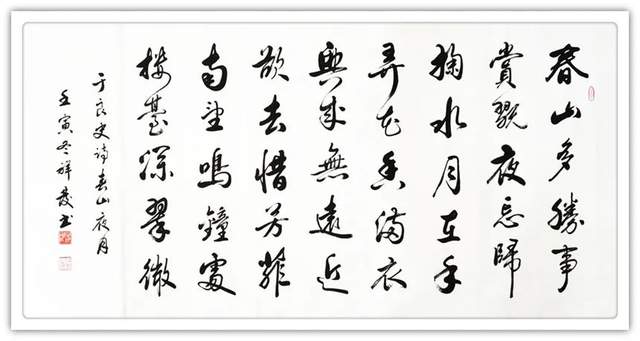 春山多勝事
賞翫夜忘歸
掬水月在手
弄花香滿衣
興來無遠近
欲去惜芳菲
南望鳴鐘處
樓臺深翠微
于良史詩春山夜月
壬寅冬祥發书